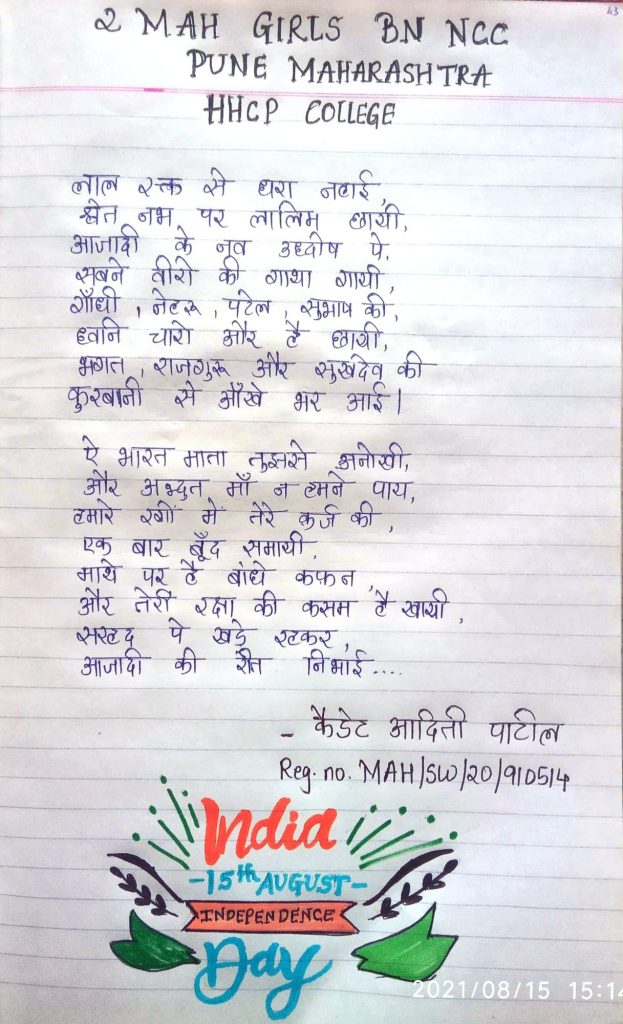 2 MAH GIRLS BN NCC
PUNE MAHARASHTRA
HHCP COLLEGE
लाल रक्त से धरा नहाई,
श्वेत नभ पर लालिम छायी,
आजादी के नव उद्घोष पे,
सबने वीरो की गाथा गायी,
गाँधी, नेहरू, पटेल, सुभाष की,
ध्वनि चारो और है छायी,
भगत, राजगुरू और सुखदेव की
कुरबानी से आँखे भर आई।
ऐ भारत माता तुझसे अनोखी,
और अद्भुत माँ न हमने पाय,
हमारे रगों में तेरे कर्ज की,
एक बार बूँद समायी.
माथे पर है बांधे कफन,
और तेरी रक्षा की कसम है खायी,
सरहद पे खड़े रहकर,
आजादी की रीत निभाई....
- कैडेट आदिती पाटील
Reg. no. MAH/SW/20/910514
India
-15th AUGUST-
INDEPENDENCE
Day
2021/08/15 15:14